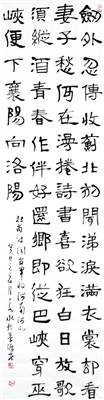 劍外忽傳收薊北初聞涕淚滿衣裳卻看
妻子愁何在漫卷詩書喜欲狂白日放歌
須縱酒青春作伴好還鄉即從巴峽穿巫
峽便下襄陽向洛陽
杜甫聞官軍收河南河北
癸巳